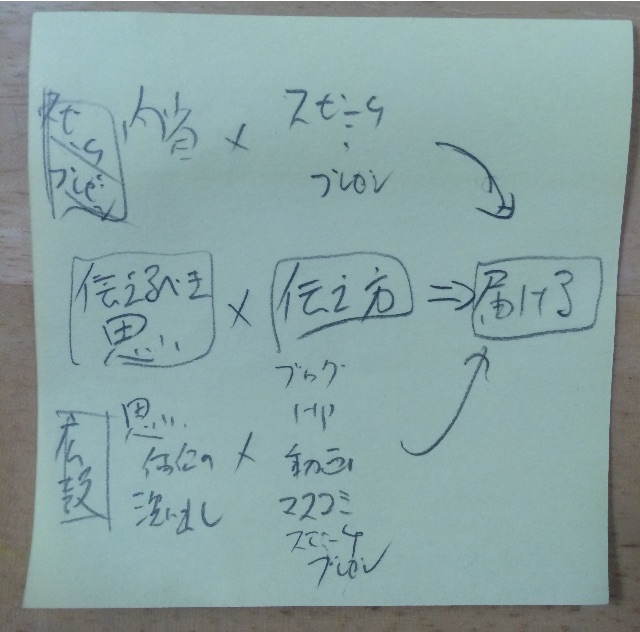 スピーチ
プレゼン
内省 × スピーチ
・
プレゼン
伝えるべき
思い
× 伝え方 ⇒ 届ける
広報
思い
価値の
洗い出し
×
ブログ
HP
動画
マスコミ
スピーチ
プレゼン